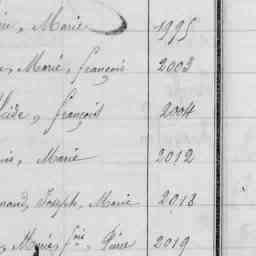 Marie 1995
Marie, françois 2003
françois 2004
Marie 2012
Joseph, Marie 2018
Marie, fois, Pierre 2019